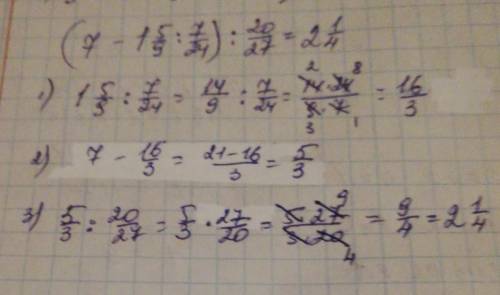 (7 - 1 5/9 : 7/24) : 20/27 = 2 1/4
1) 1 5/9 : 7/24 = 14/9 : 7/24 = 14·24/9·7 = 16/3
2 8
3 1
2) 7 - 16/3 = 21-16/3 = 5/3
3) 5/3 : 20/27 = 5/3 · 27/20 = 5·27/3·20 = 9/4 = 2 1/4
9
4